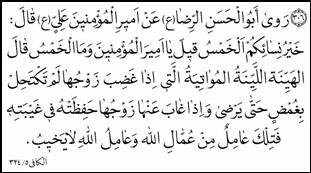 ﴿٣٠٦﴾ رَوىٰ أَبُوالْحَسَنِ الرِّضا(ع) عَنْ اَميرِ الْمُؤْمِنينَ عَلِيٍّ(ع) قالَ:
خَيْرُ نِسائِكُمُ الْخَمْسُ قيلَ يا اَميرَ الْمُؤْمِنينَ وَمَا الْخَمْسُ قالَ
الْهَيِّنَةُ اللَّيِّنَةُ الْمُؤاتِيَةُ الَّتي اِذا غَضِبَ زَوْجُها لَمْ تَكْتَحِلْ
بِغُمْضٍ حَتّٰى يَرْضىٰ وَ اِذا غابَ عَنْها زَوْجُها حَفِظَتْهُ فى غَيْبَتِهِ
فَتِلْكَ عامِلٌ مِنْ عُمّالِ اللهِ وَ عامِلُ اللهِ لا يَخيبُ.
الكافى ٣٢٤/٥